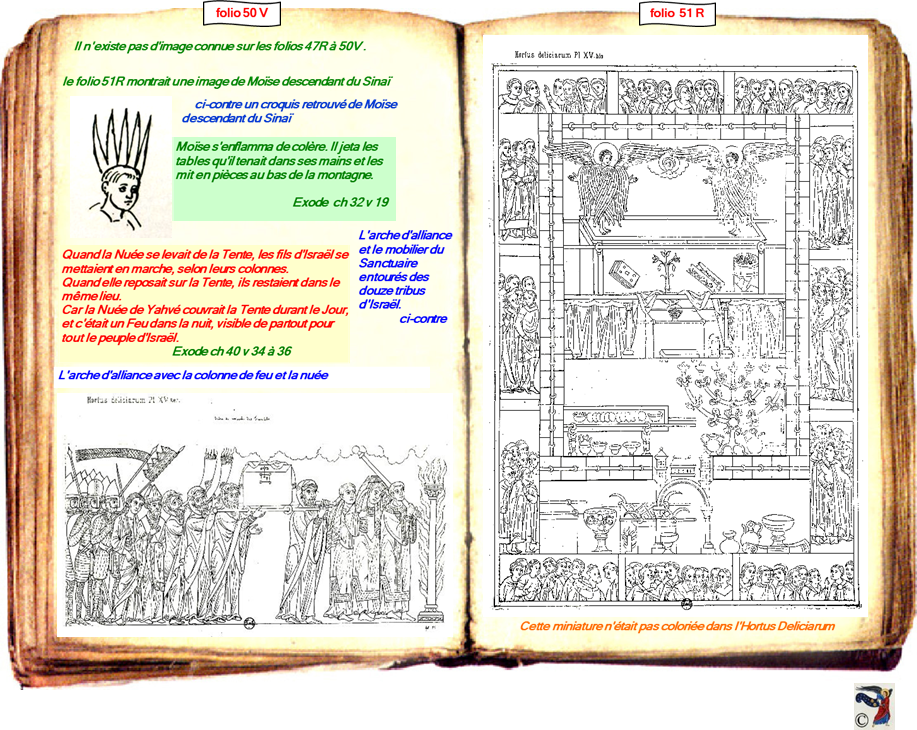 folio 50 V
Il n'existe pas d'image connue sur les folios 47R à 50V .
le folio 51R montrait une image de Moïse descendant du Sinaï
ci-contre un croquis retrouvé de Moïse
descendant du Sinaï
Moïse s'enflamma de colère. Il jeta les
tables qu'il tenait dans ses mains et les
mit en pièces au bas de la montagne.
Exode ch 32 v 19
L'arche d'alliance
et le mobilier du
Sanctuaire
entourés des
douze tribus
d'Israël.
ci-contre
Quand la Nuée se levait de la Tente, les fils d'Israël se
mettaient en marche, selon leurs colonnes.
Quand elle reposait sur la Tente, ils restaient dans le
même lieu.
Car la Nuée de Yahvé couvrait la Tente durant le Jour,
et c'était un Feu dans la nuit, visible de partout pour
tout le peuple d'Israël.
Exode ch 40 v 34 à 36
L'arche d'alliance avec la colonne de feu et la nuée
Hortus deliciarum Pl XV ter.
folio 51 R
Hortus deliciarum Pl XV. bis
Cette miniature n'était pas coloriée dans l'Hortus Deliciarum
©